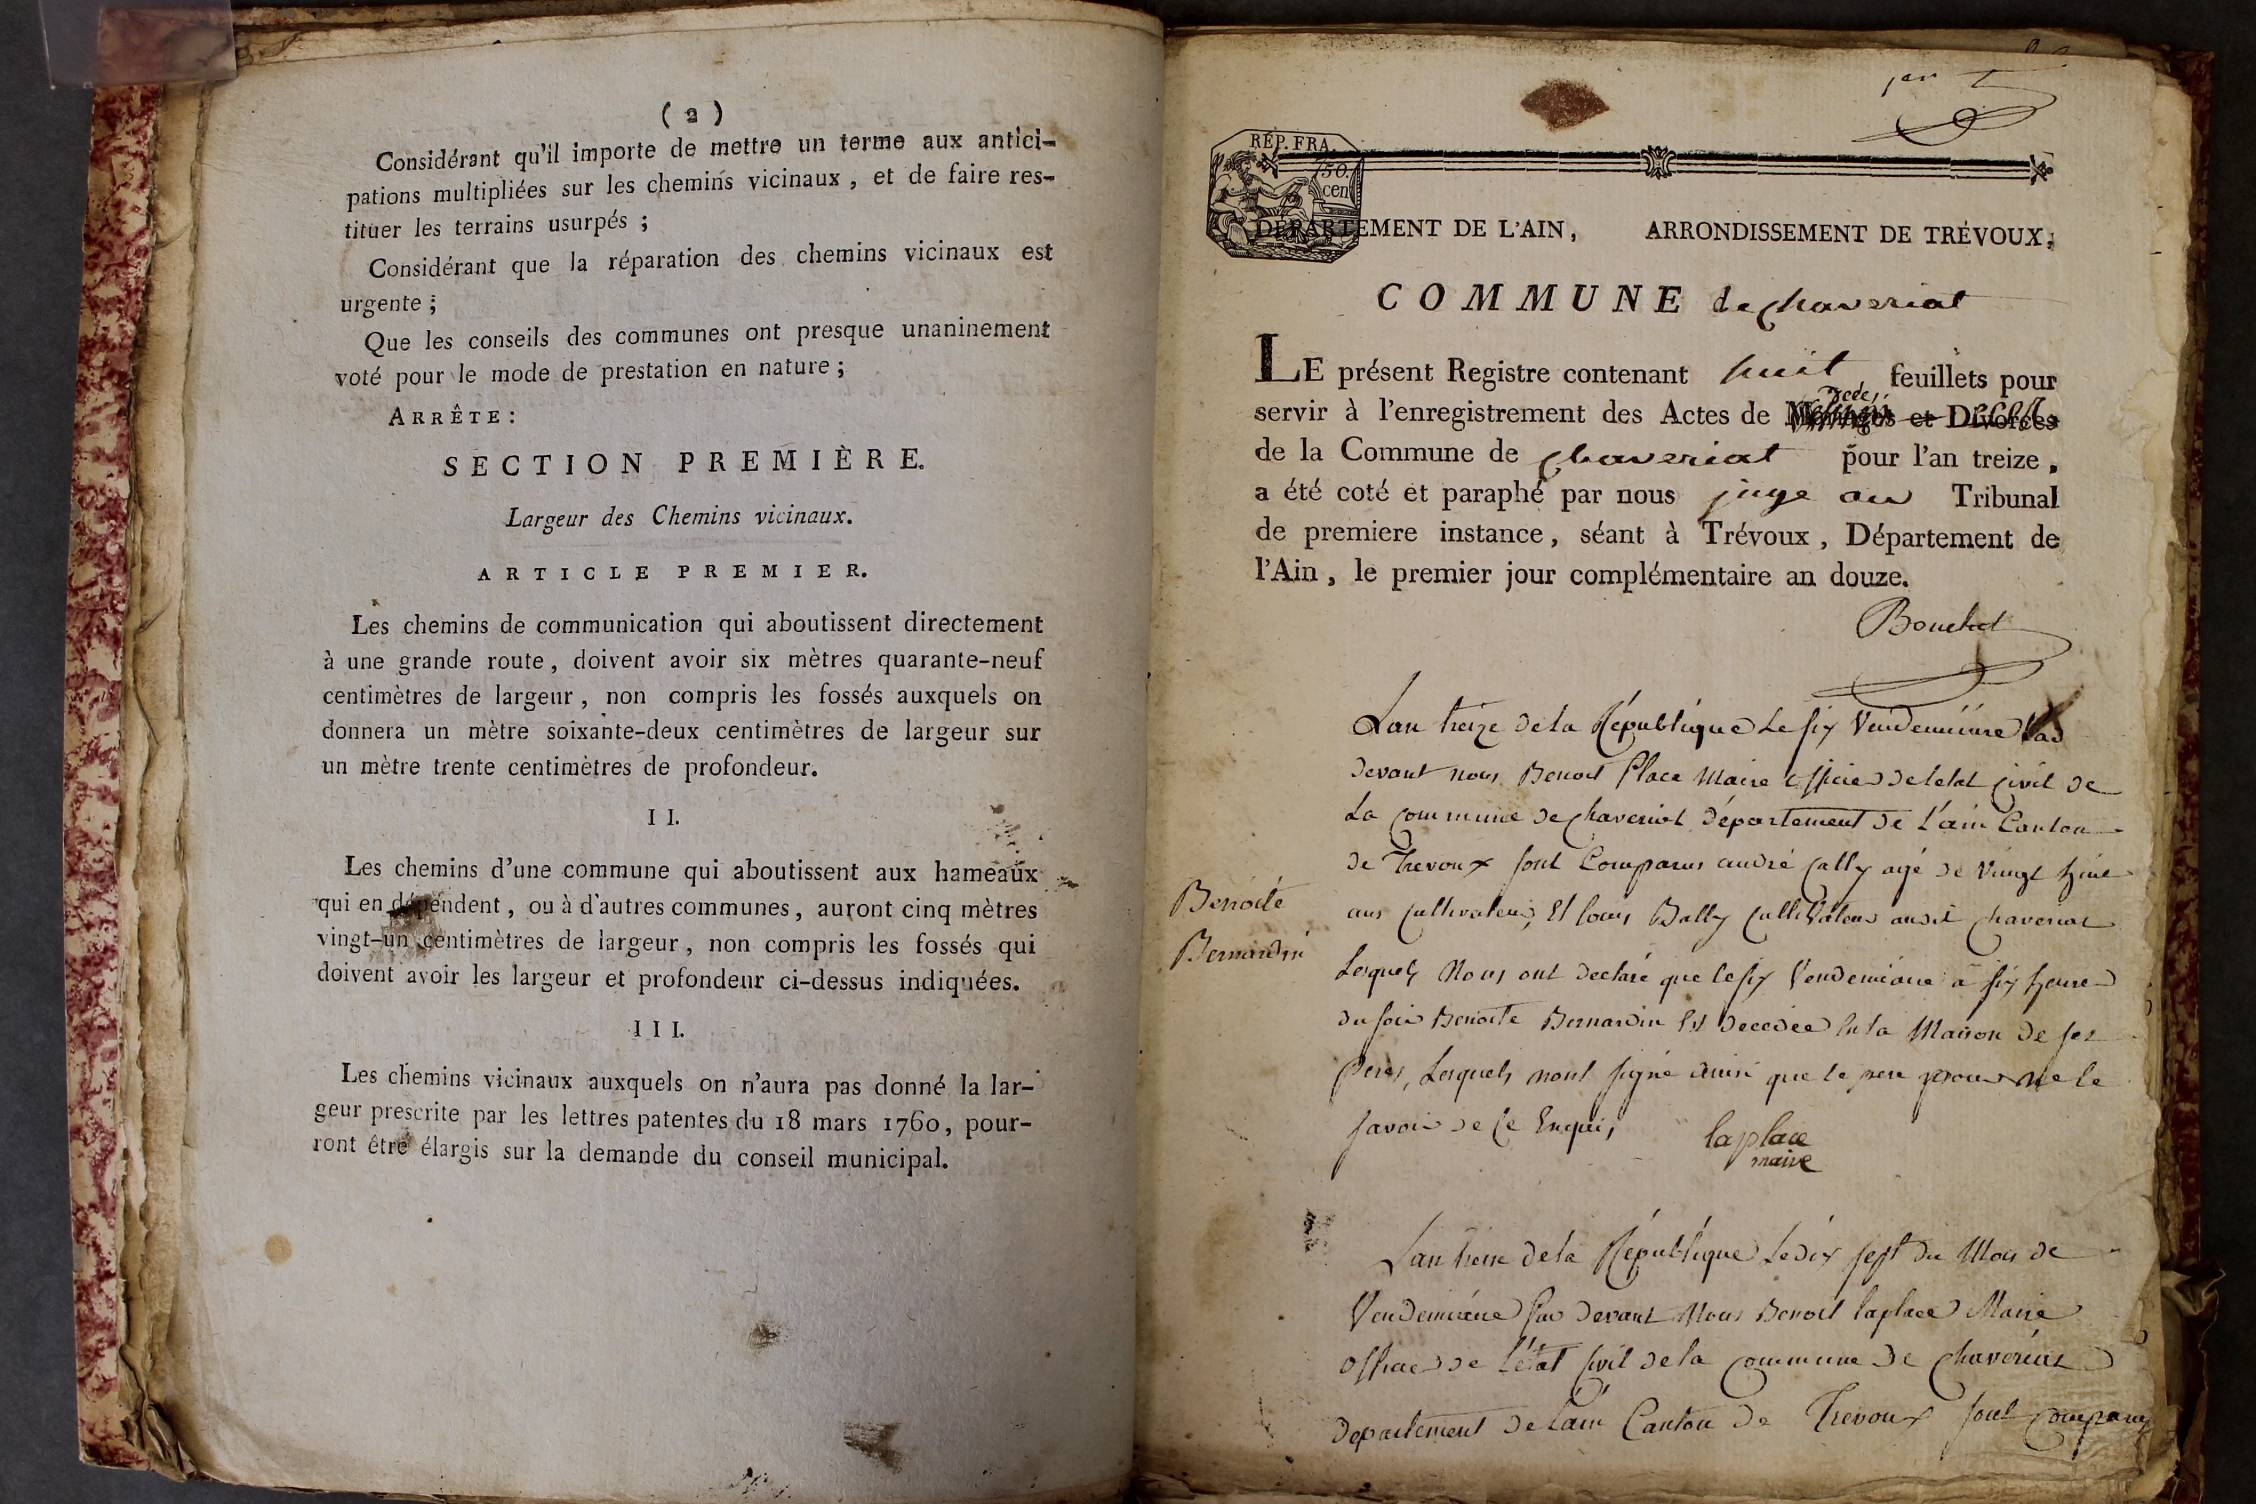 ( 2 )
Considérant qu'il importe de mettre un terme aux antici-
pations multipliées sur les chemins vicinaux, et de faire res-
tituer les terrains usurpés ;
Considérant que la réparation des chemins vicinaux est
urgente ;
Que les conseils des communes ont presque unaninement
voté pour le mode de prestation en nature ;
ARRÊTE :
SECTION PREMIÈRE.
Largeur des Chemins vicinaux.
ARTICLE PREMIER.
Les chemins de communication qui aboutissent directement
à une grande route, doivent avoir six mètres quarante-neuf
centimètres de largeur, non compris les fossés auxquels on
donnera un mètre soixante-deux centimètres de largeur sur
un mètre trente centimètres de profondeur.
II.
Les chemins d'une commune qui aboutissent aux hameaux
qui en dépendent, ou à d'autres communes, auront cinq mètres
vingt-un centimètres de largeur, non compris les fossés qui
doivent avoir les largeur et profondeur ci-dessus indiquées.
III.
Les chemins vicinaux auxquels on n'aura pas donné la lar-
geur prescrite par les lettres patentes du 18 mars 1760, pour-
ront être élargis sur la demande du conseil municipal.
1er
RÉP. FRA.
50.
cen
DÉPARTEMENT DE L'AIN, ARRONDISSEMENT DE TRÉVOUX,
COMMUNE de chaveriat
LE présent Registre contenant huit feuillets pour
servir à l'enregistrement des Actes de Mariages et Divorces
de la Commune de chaveriat pour l'an treize,
a été coté et paraphé par nous juge au Tribunal
de premiere instance, séant à Trévoux, Département de
l'Ain, le premier jour complémentaire an douze.
Bouchet
Lan treize de la République Le six Vendemiaire
devant nous Benoit place Maire officier de letat civil de
La commune de chaveriat département de l'ain Canton
de Trevoux sont Comparus andré ally agé de Vingt
ans cultivateur, Et Bally cultivateur audit chaveriat
Lesquels Nous ont declaré que le six Vendemiaire a six heure
du soir Benoite Bernardin Est decedée en la Maison de ses
peres, Lesquels nont signé ainsi que le pere pour ne le
savoir de ce Enquis
laplace
maire
Benoite
Bernardin
Lan treize de la République Le dix sept du Mois de
Vendemiaire par devant Nous Benoit laplace Maire
officier de l'état civil de la commune de chaveriat
departement de Lain Canton de Trevoux sont comparus